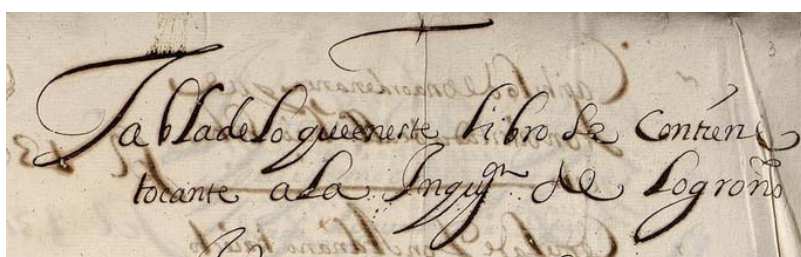 Tabla de lo que en este Libro se Contiene
tocante a La Inquiⁿ de Logroño